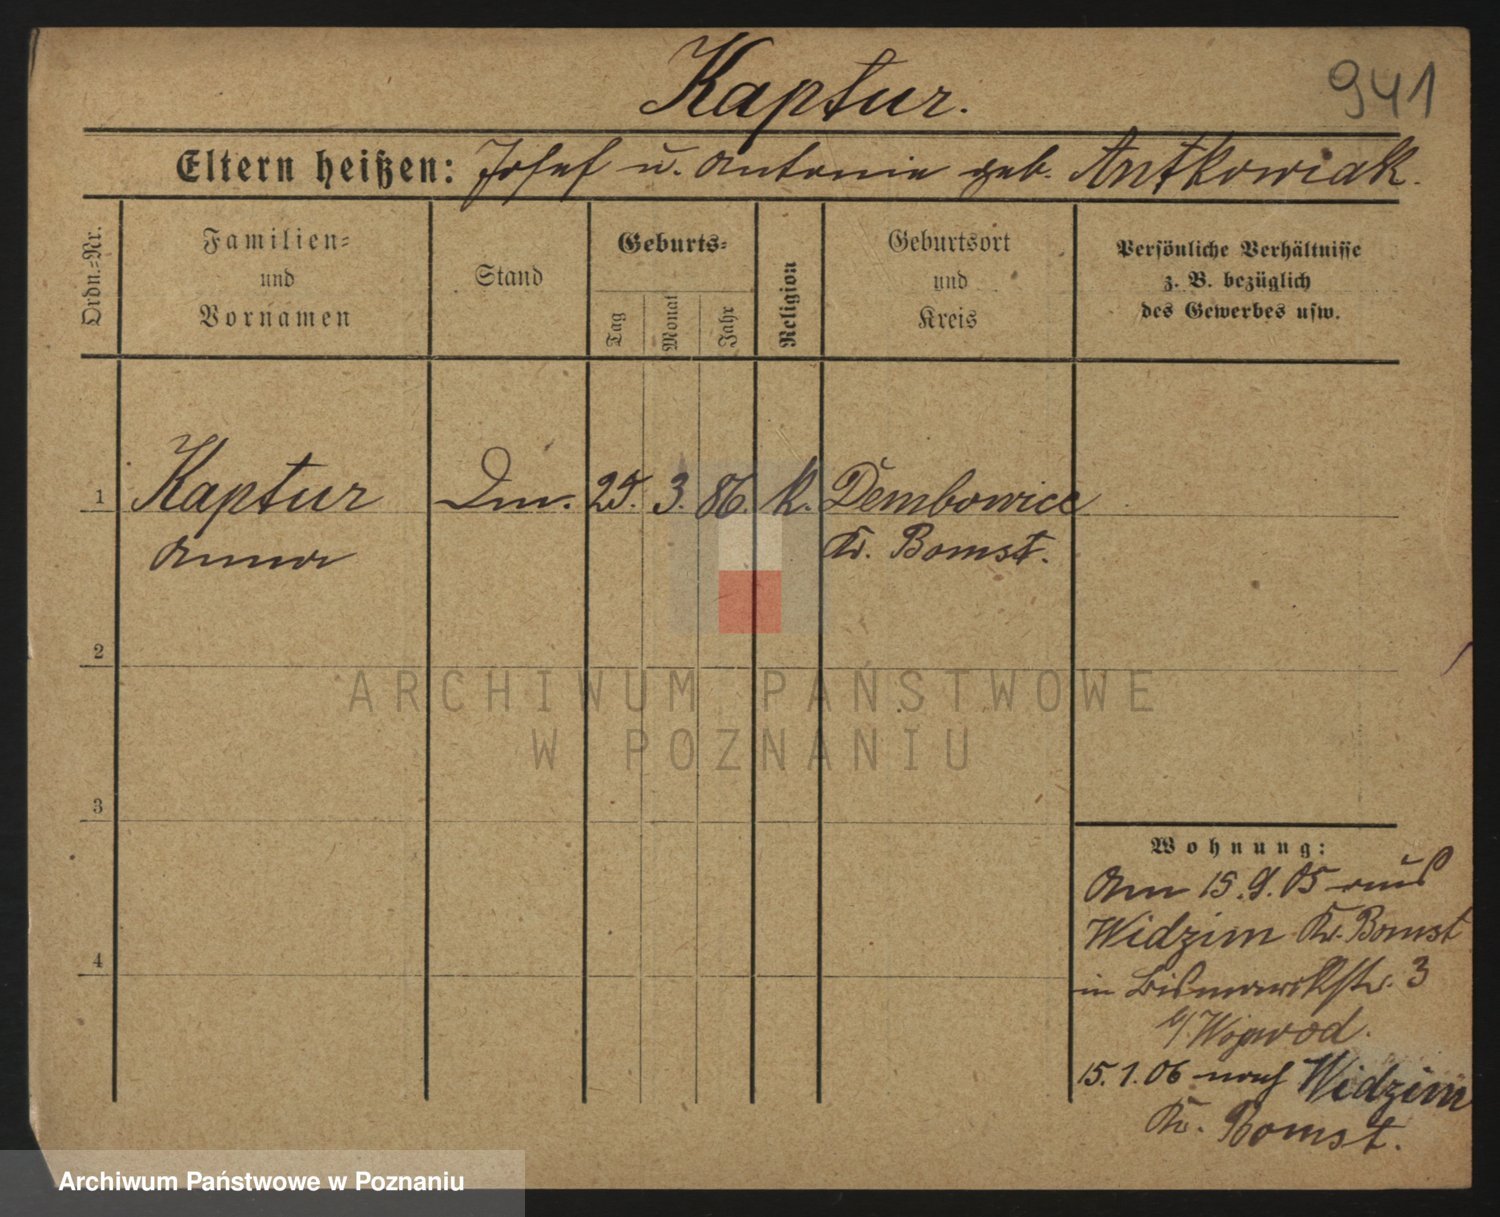 Kaptur.
941
Eltern heißen: Josef u. Antonie geb. Antkowiak.
Ordn.-Nr.
Familien-
und
Vornamen
Stand
Geburts-
Tag
Monat
Jahr
Religion
Geburtsort
und
Kreis
Persönliche Verhältnisse
z. B. bezüglich
des Gewerbes usw.
1 Kaptur 25. 3. 86. k. Dembowice
Anna Kr. Bomst.
2
3
4
Wohnung:
Am 15.9.05 aus
Widzim Kr. Bomst
in Bismarckstr. 3
b/ Wojwod.
15.1.06 nach Widzim
Kr. Bomst.
ARCHIWUM PAŃSTWOWE
W POZNANIU
Archiwum Państwowe w Poznaniu